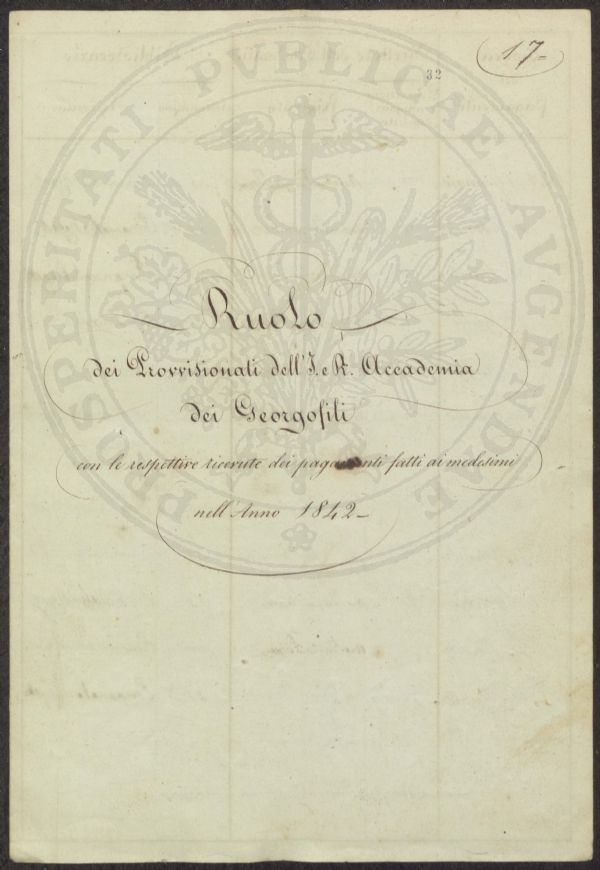 17-
32
PROSPERITATI PUBLICAE AUGENDAE
Ruolo
dei Provvisionati dell'I. e R. Accademia
dei Georgofili
con le respettive ricevute dei pagamenti fatti ai medesimi
nell'Anno 1842-